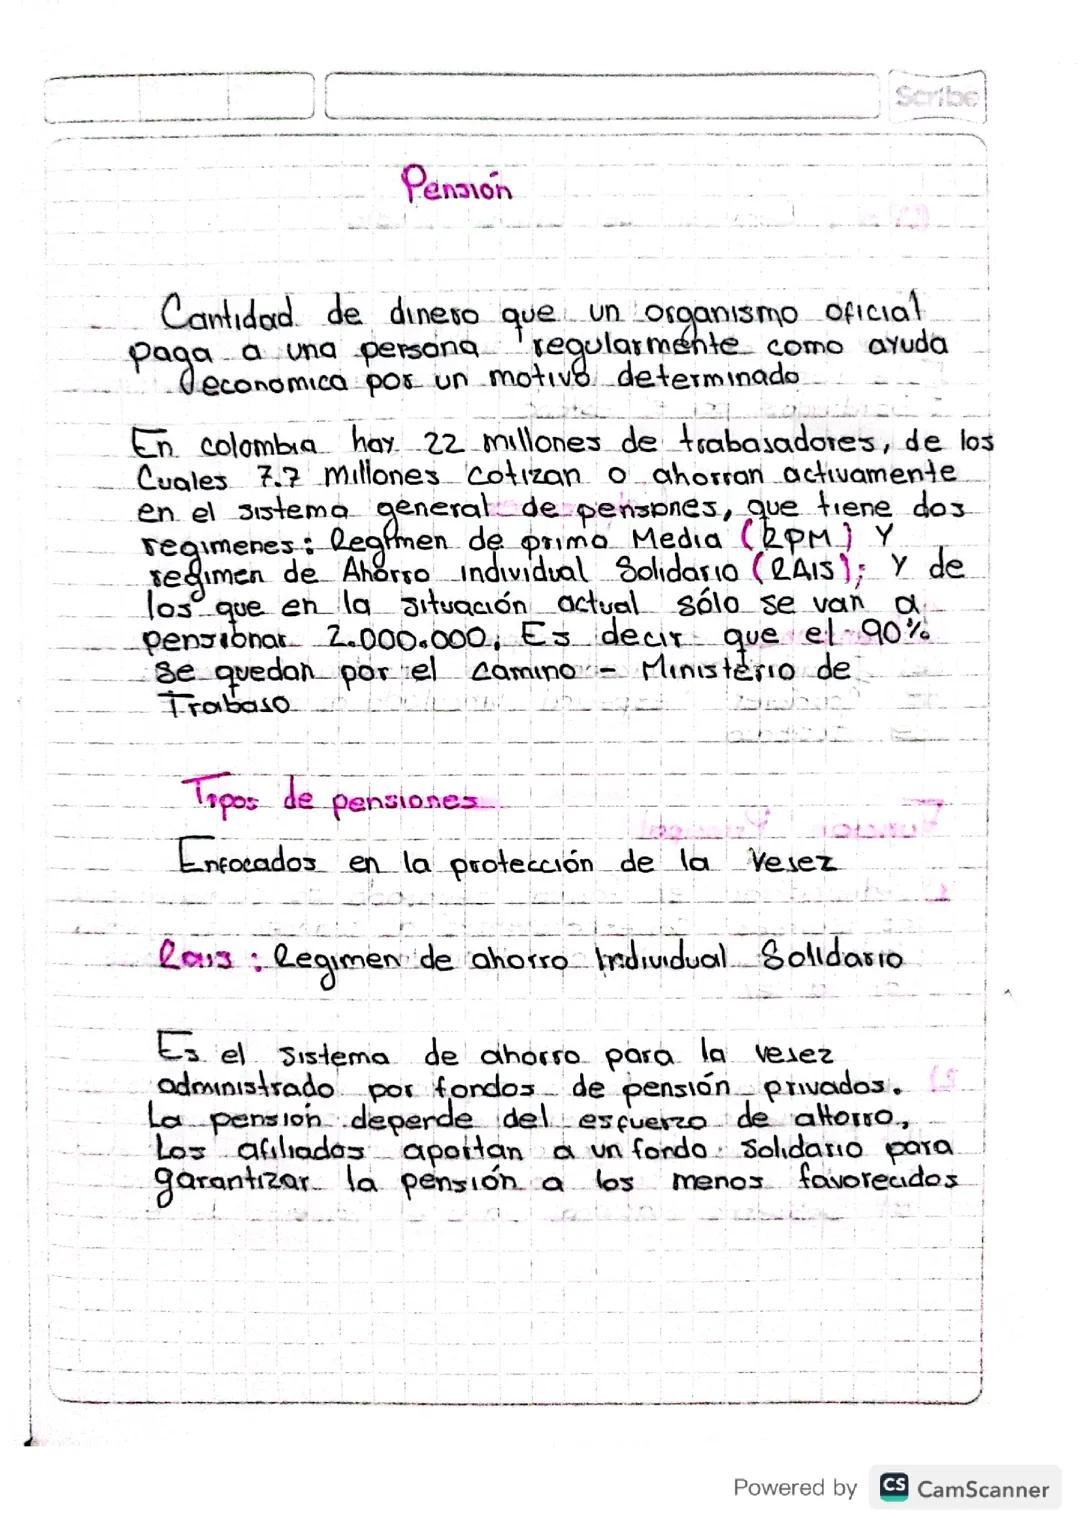 Scribe
Pensión
Cantidad de dinero que un organismo oficial
paga a una persona regularmente como ayuda
economica por un motivo determinado
En colombia hay 22 millones de trabajadores, de los
Cuales 7.7 Millones cotizan o ahorran activamente
en el sistema general de pensiones, que tiene dos
regimenes: Regimen de prima Media (RPM) Y
regimen de Ahorro individual Solidario (RAIS); Y de
los que en la situación actual sólo se van a
pensionar 2.000.000. Es decir que el 90%
se quedan por el camino - Ministerio de
Trabajo
Tipos de pensiones
Enfocados en la protección de la Vejez
Rais: Regimen de ahorro Individual Solidario
Es el sistema de ahorro para la vejez
administrado por fondos de pensión privados.
La pensión depende del esfuerzo de ahorro.,
Los afiliados aportan a un fondo Solidario para
garantizar la pensión a los menos favorecidos
Powered by CS CamScanner